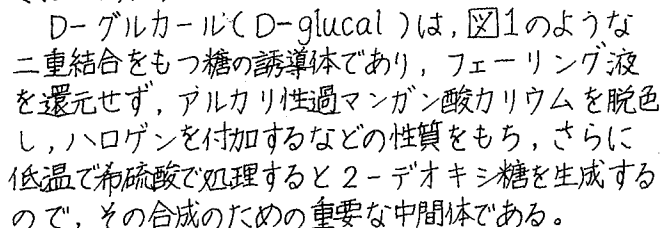 D-グルカール(D-glucal)は,図1のような
二重結合をもつ糖の誘導体であり,フェーリング液
を還元せず,アルカリ性過マンガン酸カリウムを脱色
し,ハロゲンを付加するなどの性質をもち,さらに
低温で希硫酸で処理すると2-デオキシ糖を生成する
ので,その合成のための重要な中間体である。